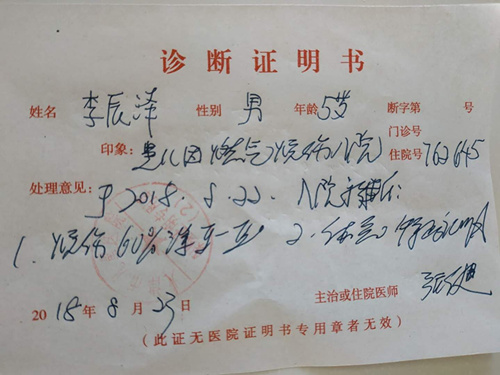 诊断证明书
姓名 李辰泽 性别 男 年龄 5岁 断字第 号
门诊号
印象：患儿因燃气烧伤入院 住院号 762645
处理意见：于2018.8.22.入院
1.烧伤60% 2.
2018年8月23日 主治或住院医师 张
（此证无医院证明书专用章者无效）